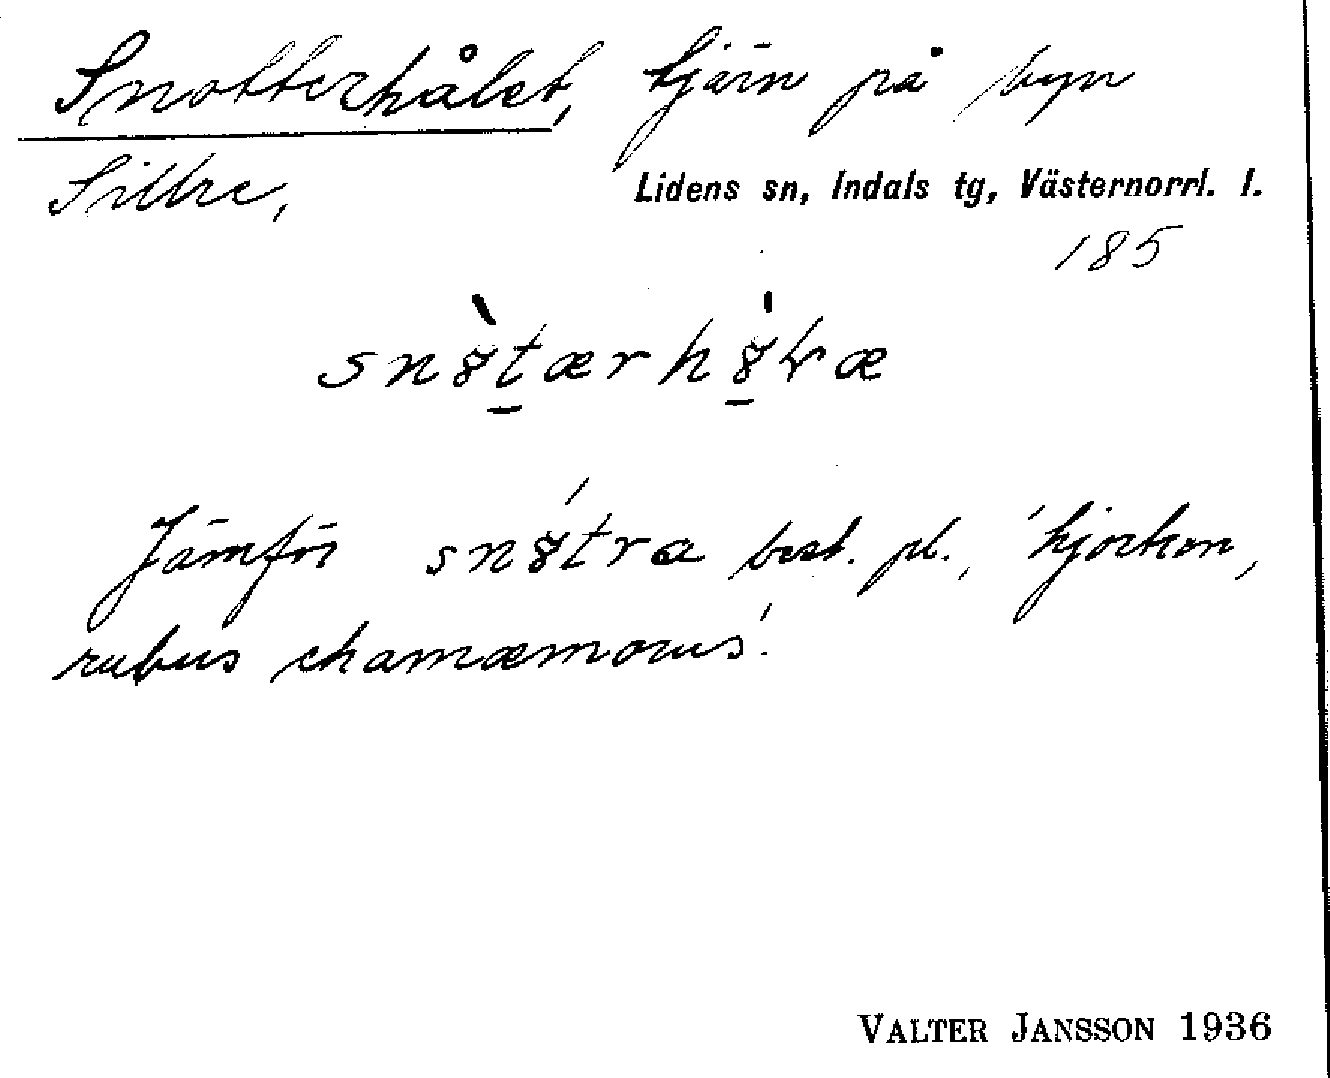 Snotterhålet, tjärn på byn
Sillre,
Lidens sn, Indals tg, Västernorrl. l.
185
sn8̀tærh8̍ɽæ
Jämför sn8́tra best. pl., 'hjortron,
rubus chamæmorus'.
VALTER JANSSON 1936